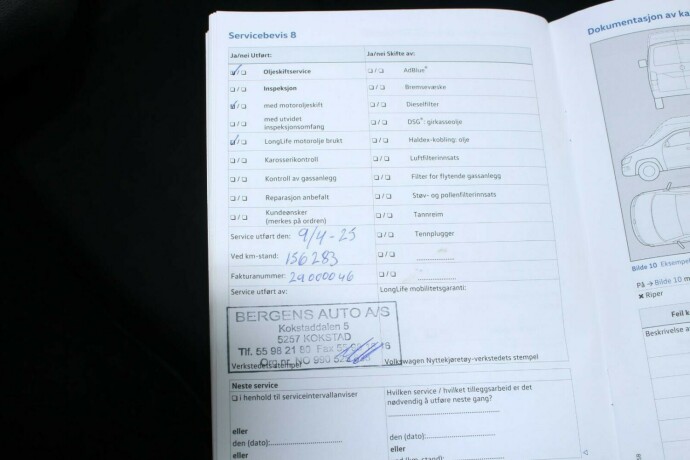 Servicebevis 8
Ja/nei Utført: Ja/nei Skifte av:
Oljeskiftservice AdBlue®
Inspeksjon Bremsevæske
med motoroljeskift Dieselfilter
med utvidet inspeksjonsomfang DSG®: girkasseolje
LongLife motorolje brukt Haldex-kobling: olje
Karosserikontroll Luftfilterinnsats
Kontroll av gassanlegg Filter for flytende gassanlegg
Reparasjon anbefalt Støv- og pollenfilterinnsats
Kundeønsker (merkes på ordren) Tannreim
Service utført den: 9/4-25 Tennplugger
Ved km-stand: 156283
Fakturanummer: 29000046
Service utført av: LongLife mobilitetsgaranti:
BERGENS AUTO A/S
Kokstaddalen 5
5257 KOKSTAD
Tlf. 55 98 21 80 Fax 55
Org.nr. NO
Verkstedets stempel Volkswagen Nyttekjøretøy-verkstedets stempel
Neste service
i henhold til serviceintervallanviser
Hvilken service / hvilket tilleggsarbeid er det
nødvendig å utføre neste gang?
eller
den (dato): den (dato):
eller eller
Dokumentasjon av ka
Bilde 10 Eksempel
På → Bilde 10 m
Riper
Feil k
Beskrivelse a